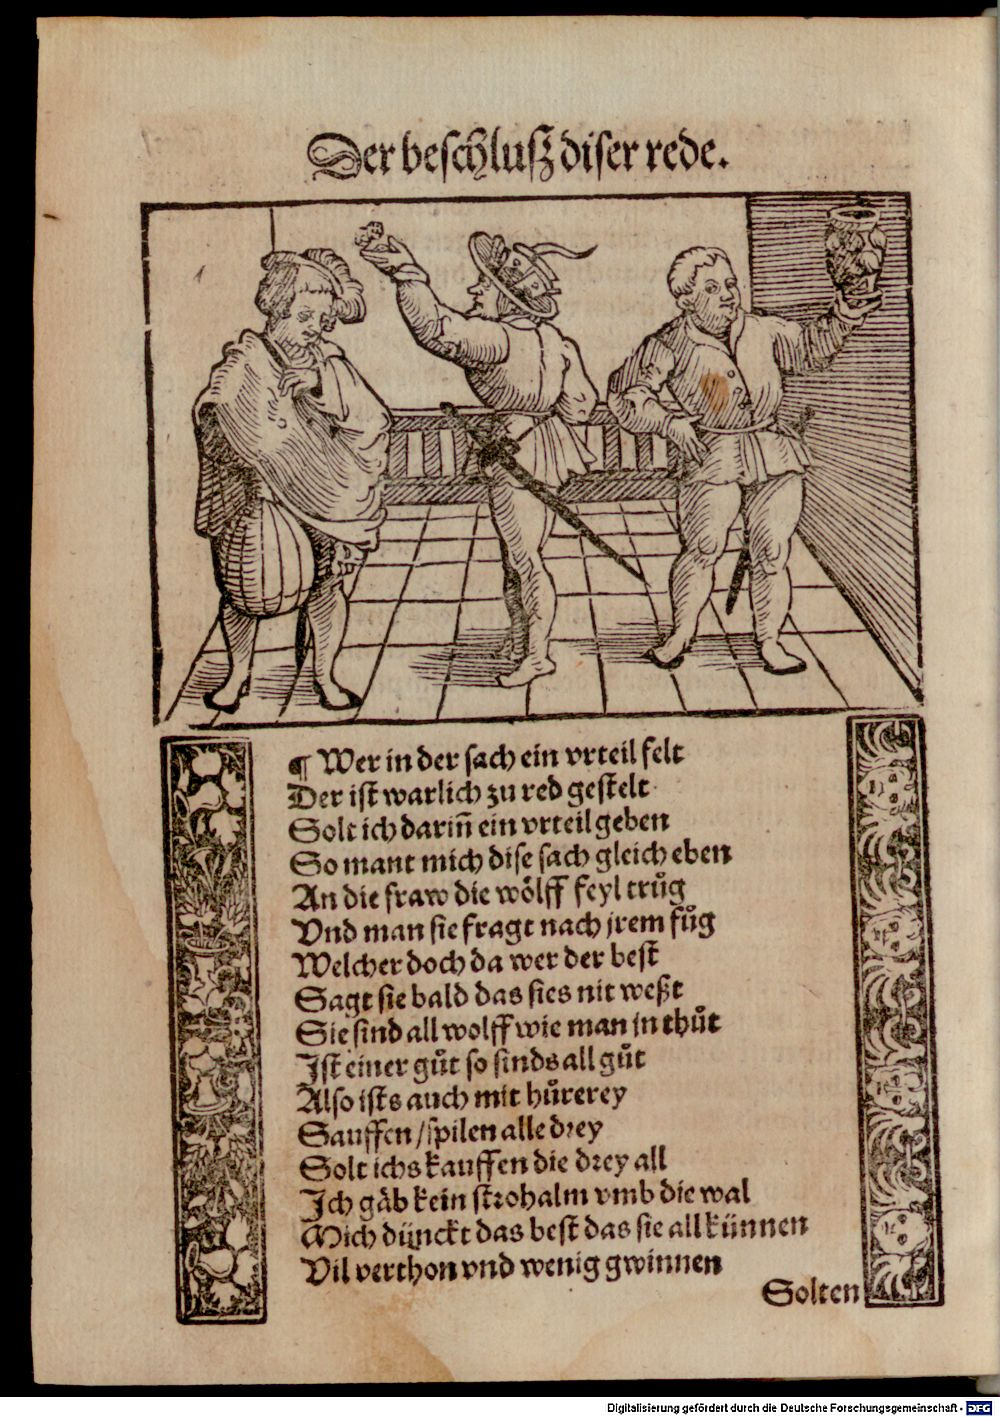 Der beschlusz diser rede.
¶ Wer in der sach ein vrteil felt
Der ist warlich zu red gestelt
Solt ich darin̄ ein vrteil geben
So mant mich dise sach gleich eben
An die fraw die woͤlff feyl truͦg
Vnd man sie fragt nach jrem fuͦg
Welcher doch da wer der best
Sagt sie bald das sies nit weßt
Sie sind all wolff wie man jn thuͦt
Ist einer guͦt so sinds all guͦt
Also ists auch mit huͦrerey
Sauffen / spilen alle drey
Solt ichs kauffen die drey all
Ich gaͤb kein strohalm vmb die wal
Mich dünckt das best das sie all künnen
Vil verthon vnd wenig gwinnen
Solten
Digitalisierung gefördert durch die Deutsche Forschungsgemeinschaft - DFG